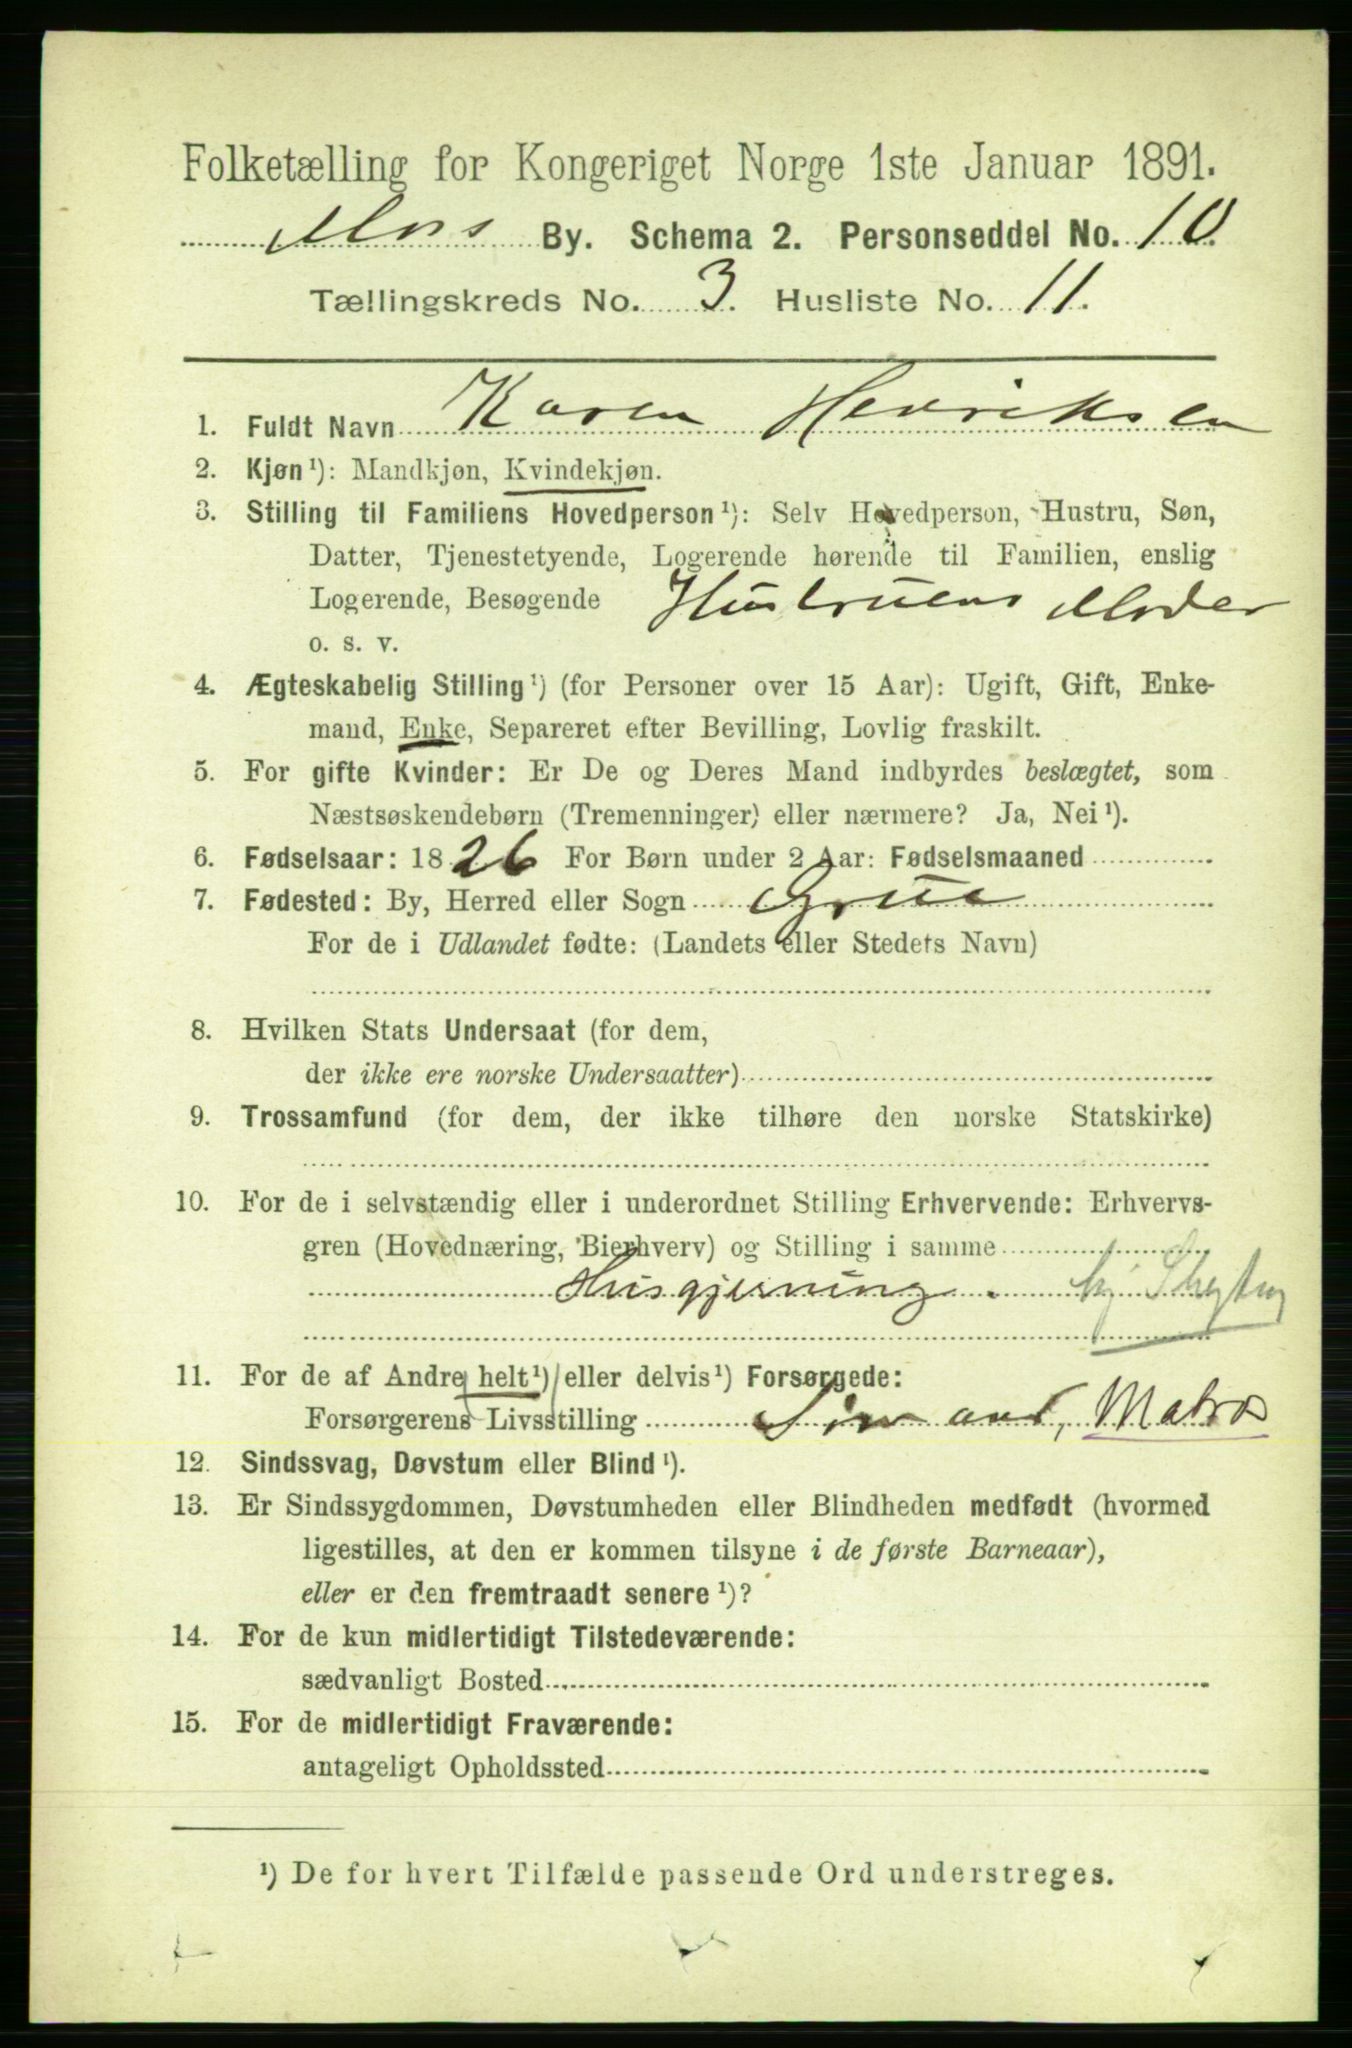 Folketælling for Kongeriget Norge 1ste Januar 1891.
Moss By. Schema 2. Personseddel No. 10.
Tællingskreds No. 3. Husliste No. 11.
1. Fuldt Navn Karen Henriksen
2. Kjøn ¹): Mandkjøn, Kvindekjøn.
3. Stilling til Familiens Hovedperson ¹): Selv Hovedperson, Hustru, Søn,
Datter, Tjenestetyende, Logerende hørende til Familien, enslig
Logerende, Besøgende Hustruens Moder
o. s. v.
4. Ægteskabelig Stilling ¹) (for Personer over 15 Aar): Ugift, Gift, Enke-
mand, Enke, Separeret efter Bevilling, Lovlig fraskilt.
5. For gifte Kvinder: Er De og Deres Mand indbyrdes beslægtet, som
Næstsøskendebørn (Tremenninger) eller nærmere? Ja, Nei ¹).
6. Fødselsaar: 1826 For Børn under 2 Aar: Fødselsmaaned
7. Fødested: By, Herred eller Sogn Grue
For de i Udlandet fødte: (Landets eller Stedets Navn)
8. Hvilken Stats Undersaat (for dem,
der ikke ere norske Undersaatter)
9. Trossamfund (for dem, der ikke tilhøre den norske Statskirke)
10. For de i selvstændig eller i underordnet Stilling Erhvervende: Erhvervs-
gren (Hovednæring, Bierhverv) og Stilling i samme
Husgjerning.
11. For de af Andre helt ¹) eller delvis ¹) Forsørgede:
Forsørgerens Livsstilling Matros
12. Sindssvag, Døvstum eller Blind ¹).
13. Er Sindssygdommen, Døvstumheden eller Blindheden medfødt (hvormed
ligestilles, at den er kommen tilsyne i de første Barneaar),
eller er den fremtraadt senere ¹)?
14. For de kun midlertidigt Tilstedeværende:
sædvanligt Bosted
15. For de midlertidigt Fraværende:
antageligt Opholdssted
¹) De for hvert Tilfælde passende Ord understreges.